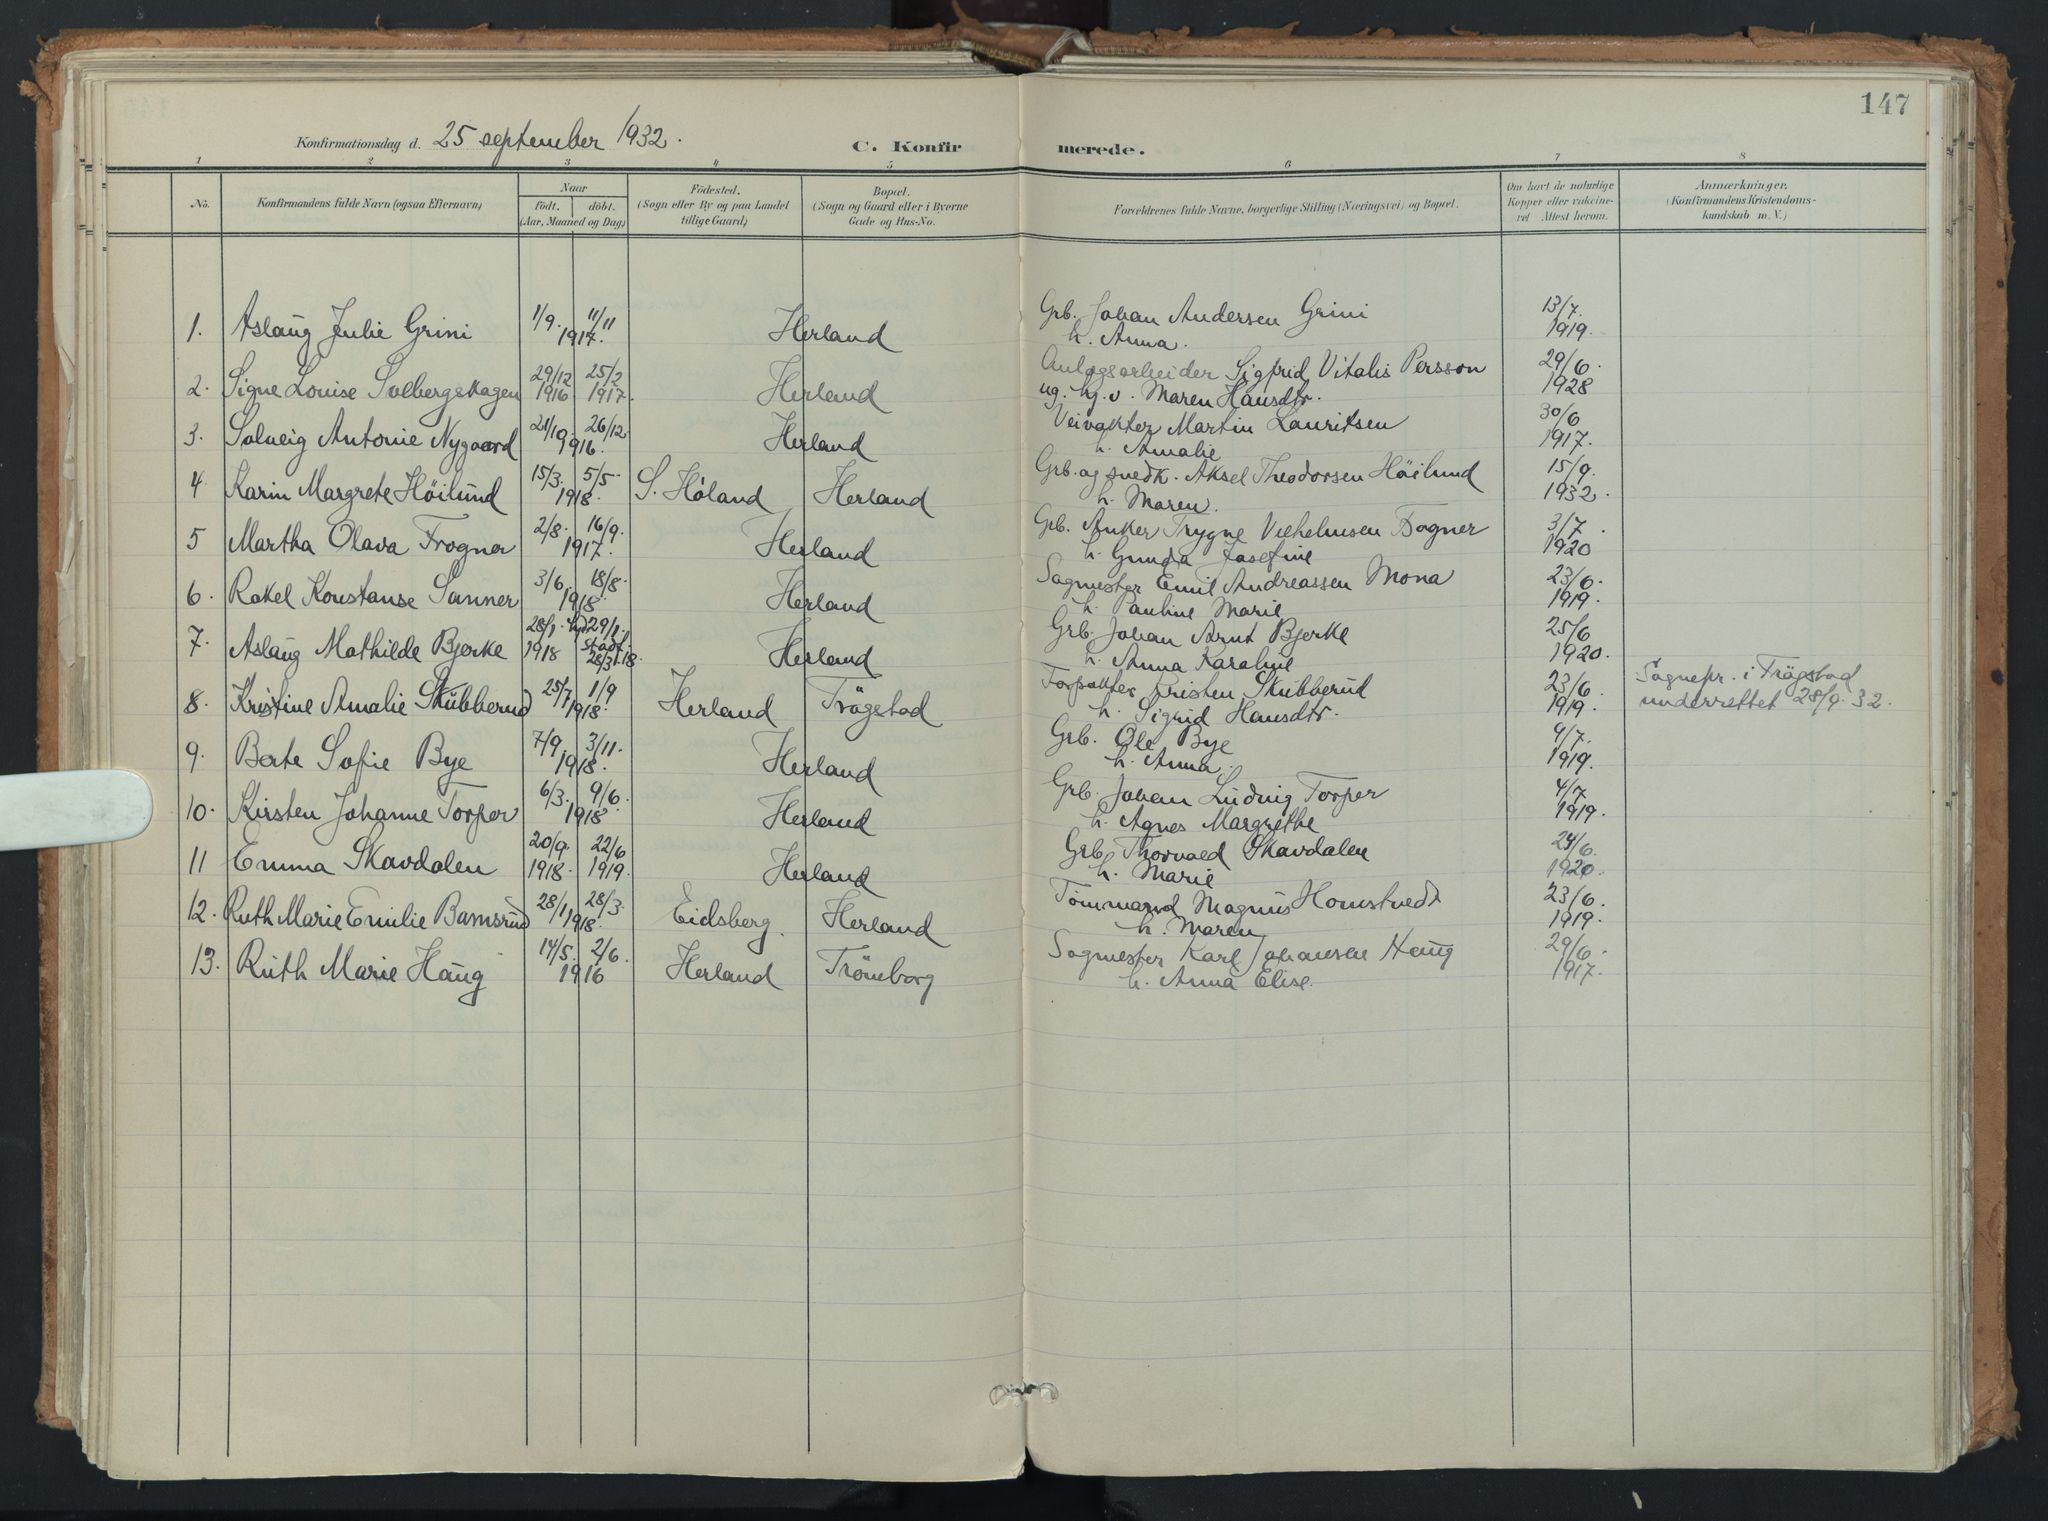 147
Konfirmationsdag d. 25 september 1932.
C. Konfirmerede.
1 2 3 4 5 6 7 8
No.
Konfirmandens fulde Navn (ogsaa Efternavn)
Naar
födt. döbt.
(Aar, Maaned og Dag)
Födested.
(Sogn eller By og paa Landet
tillige Gaard)
Bopæl.
(Sogn og Gaard eller i Byerne
Gade og Hus-No.
Forældrenes fulde Navne, borgerlige Stilling (Næringsvei) og Bopæl.
Om havt de naturlige
Kopper eller vakcine-
ret Attest herom.
Anmærkninger.
(Konfirmandens Kristendoms-
kundskab m. V.)
1. Aslaug Julie Grini 1/9. 11/11 1917. Herland Grb. Johan Andersen Grini 13/7.
h. Anna. 1919.
2. Signe Louise Solbergskagen 29/12 1916 25/2 1917. Herland Anlagsarbeider Sigfrid Vitalis Persson 29/6.
ug. hj.v. Maren Hansdtr. 1928
3. Solveig Antonie Nygaard 21/10 26/12. 1916. Herland Veivokter Martin Lauritsen 30/6
h. Amalie 1917.
4 Karin Margrete Höilund 15/3. 5/5- 1918. S. Höland Herland Grb. og snedk. Aksel Theodorsen Höilund 15/9.
h. Maren. 1932.
5 Martha Olava Frogner 2/8. 16/9. 1917. Herland Grb. Anker Trygve Vilhelmsen Frogner 3/7.
h. Gunda Josefine 1920
6. Rakel Konstanse Sanner 3/6. 18/8. 1918. Herland Sagmester Emil Andreassen Mona 23/6.
h. Pauline Marie 1919.
7. Aslaug Mathilde Bjerke 28/1. 1918 29/1. stadf. 28/3.18. Herland Grb. Johan Arnt Bjerke 25/6
h. Anna Karoline 1920.
8. Kristine Amalie Skubberud 25/7 1/9 1918. Herland Trögstad Kristen Skubberud 23/6. Sognepr. i Trögstad
h. Sigrid Hansdtr. 1919. underrettet 28/9. 32.
9. Berte Sofie Bye 7/9. 3/11. 1918. Herland Grb. Ole Bye 9/7.
h. Anna. 1919.
10. Kirsten Johanne Torper 6/3. 9/6. 1918. Herland Grb. Johan Ludvig Torper 4/7
h. Agnes Margrethe 1919.
11 Emma Skavdalen 20/9. 1918. 22/6 1919. Herland Grb. Thorvald Skavdalen 24/6.
h. Marie 1920.
12. Ruth Marie Emilie Bamsrud 28/1 28/3. 1918. Eidsberg. Herland Tömmermand Magnus Homstvedt 23/6.
h. Maren 1919.
13. Ruth Marie Haug 14/5. 2/6. 1916 Herland Tröneborg Sagmester Karl Johansen Haug 29/6.
h. Anna Elise. 1917.